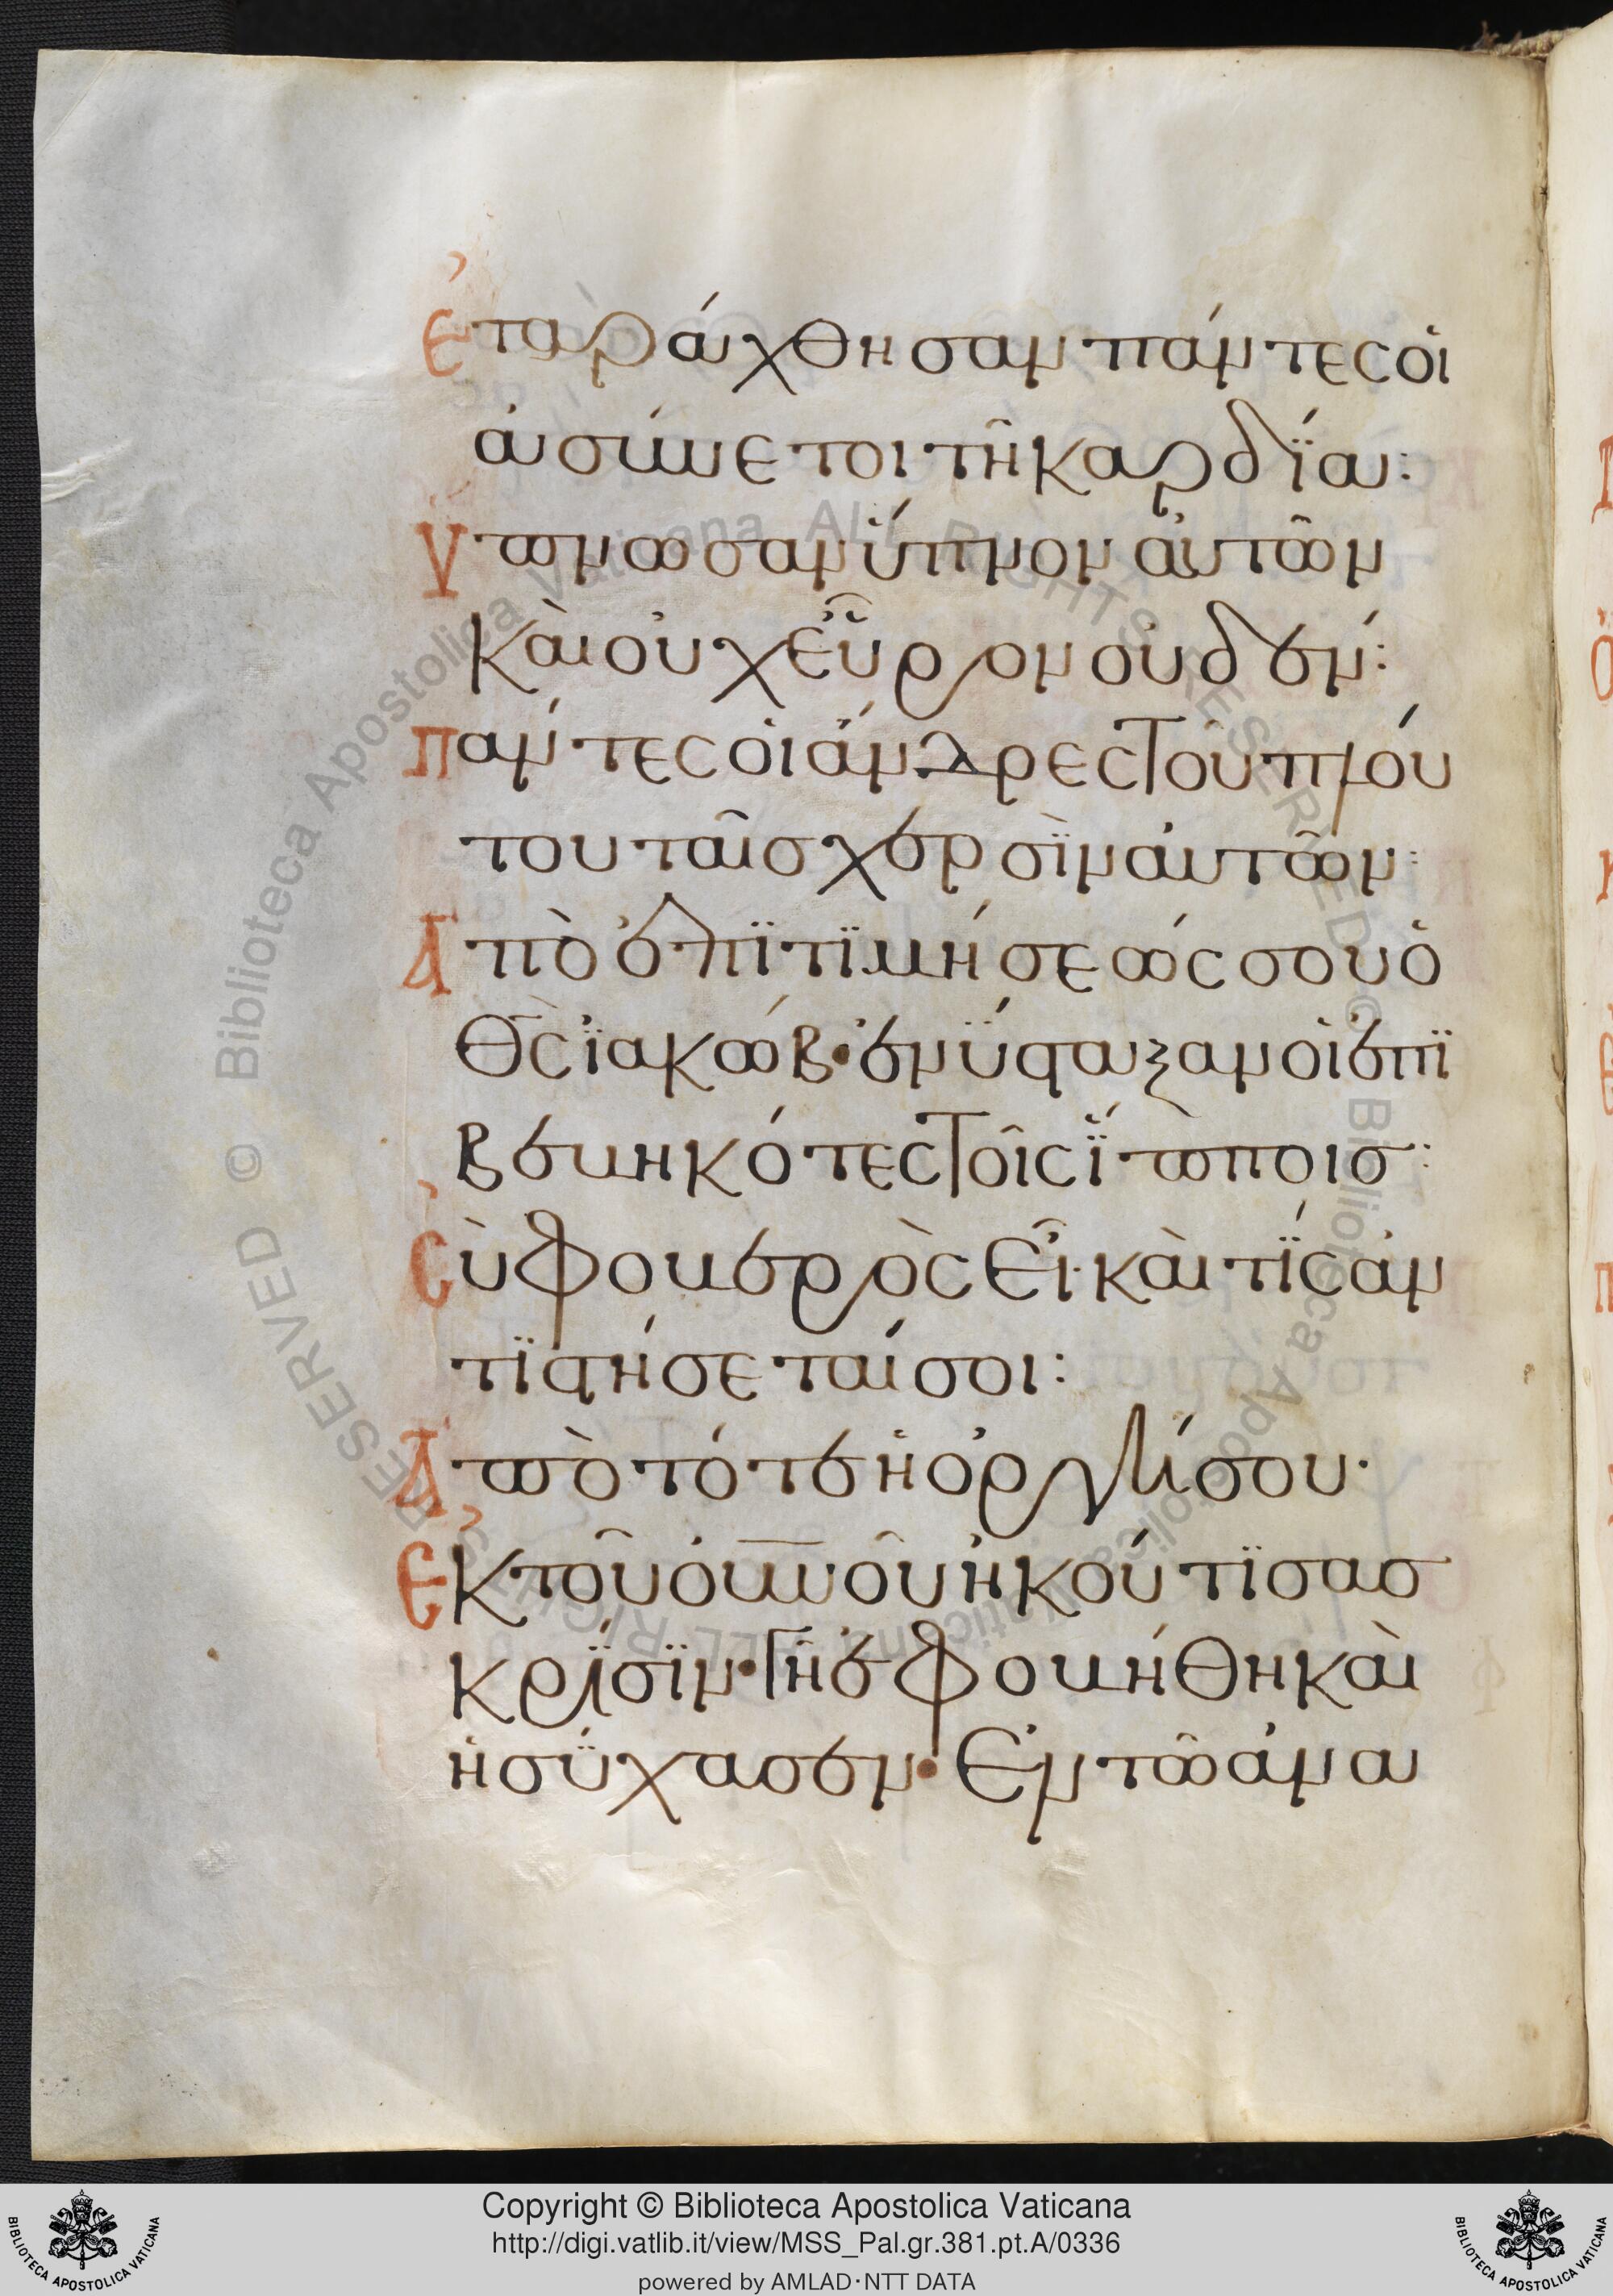 ἐταράχθησαν πάντες οἱ
ἀσύνετοι τῆ καρδΐα:
ὕπνωσαν ὕπνον ἀυτῶν
Καὶ οὐχ εὗρον οὐδεν:
Πάντες οἱ άνδρες τοῦ πλού
του ταῖσ χερσὶν ἀυτῶν:
Ἀπὸ ἐπϊτϊμήσεώς σου ὁ
Θ̅ς̅ ϊακώβ· ἐνύσταξαν οἱ ἐπϊ
βεβηκότες τοῖς ἵπποισ:
Σὺ φοβερὸς εἶ· καὶ τΐς ἀν
τϊστήσεταί σοι:
Ἀπὸ τότε ἡ ὀργήσου·
Ἐκ τοῦ ὀυ̅ν̅οῦ ἠκούτϊσασ
κρΐσϊν· Γῆ ἐφοβήθη καὶ
ἡσύχασεν· Ἐν τῶ ἀνα
Copyright © Biblioteca Apostolica Vaticana
http://digi.vatlib.it/view/MSS_Pal.gr.381.pt.A/0336
powered by AMLAD·NTT DATA